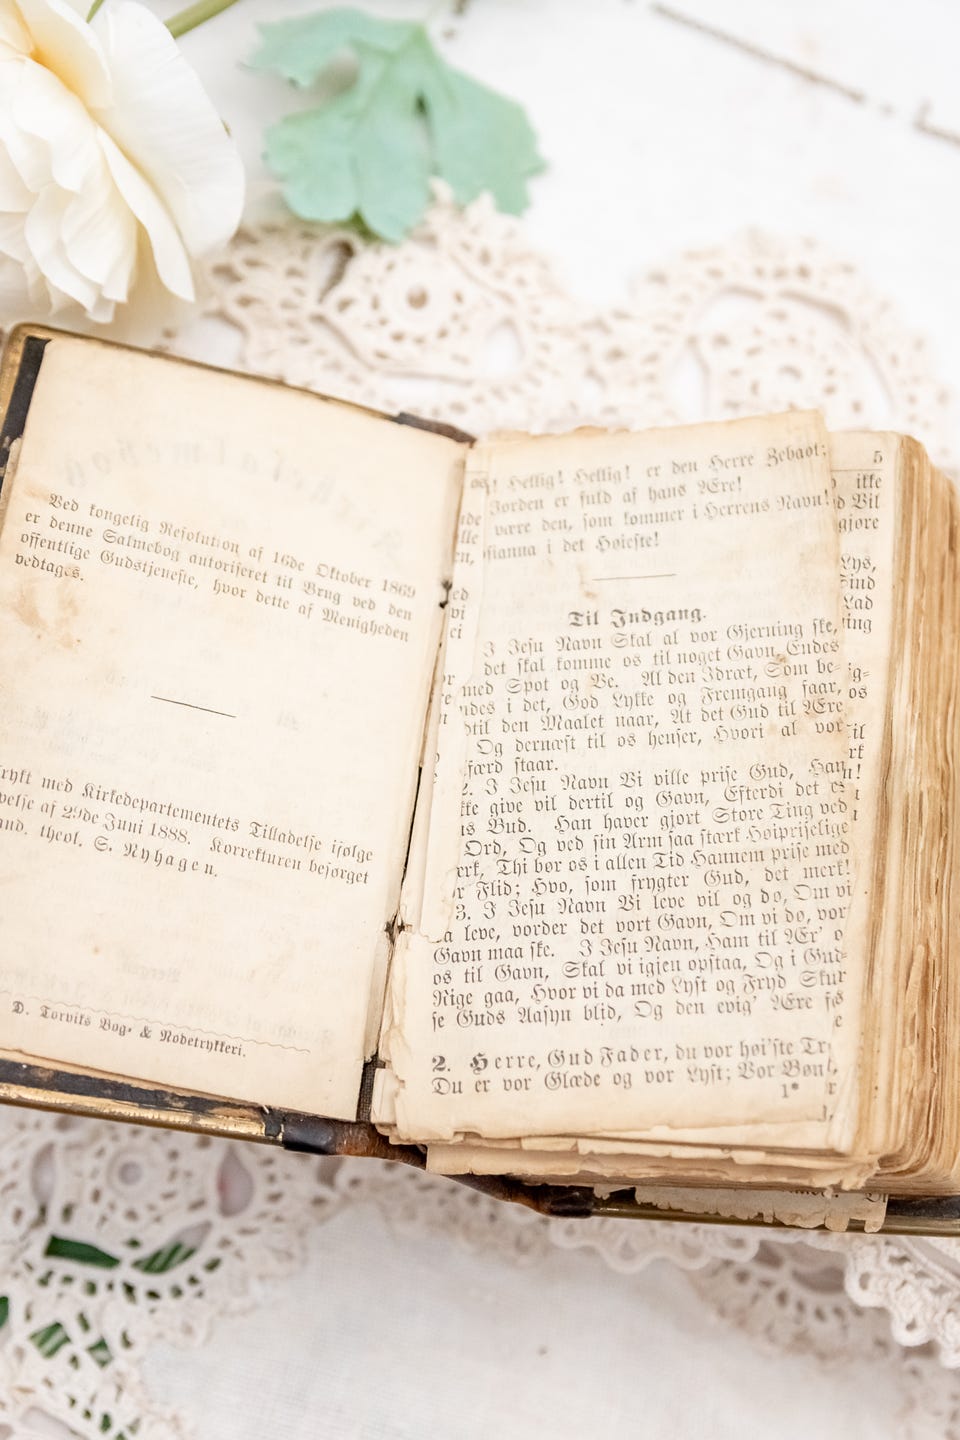 Ved kongelig Resolution af 16de Oktober 1869
er denne Salmebog autoriseret til Brug ved den
offentlige Gudstjeneste, hvor dette af Menigheden
vedtages.
med Kirkedepartementets Tilladelse ifølge
af 29de Juni 1888. Korrekturen besørget
theol. S. Nyhagen.
D. Torviks Bog- & Nodetrykkeri.
Hellig! Hellig! er den Herre Zebaot;
Jorden er fuld af hans Ære!
være den, som kommer i Herrens Navn!
i det Høieste!
Til Indgang.
I Jesu Navn Skal al vor Gjerning ske,
det skal komme os til noget Gavn, Endes
med Spot og Ve. Al den Idræt, Som be-
i det, God Lykke og Fremgang faar,
den Maalet naar, At det Gud til Ære
Og dernæst til os henser, Hvori al vor
færd staar.
2. I Jesu Navn Vi ville prise Gud, Han
give vil dertil og Gavn, Efterdi det
Bud. Han haver gjort Store Ting ved
Ord, Og ved sin Arm saa stærk Høipriselige
Thi bør os i allen Tid Hannem prise med
Flid; Hvo, som frygter Gud, det merk!
3. I Jesu Navn Vi leve vil og do, Om vi
leve, vorder det vort Gavn, Om vi do, vor
Gavn maa ske. I Jesu Navn, Ham til Ær' o
os til Gavn, Skal vi igjen opstaa, Og i Gud-
Rige gaa, Hvor vi da med Lyst og Fryd Skue
se Guds Aasyn blid, Og den evig' Ære
2. Herre, Gud Fader, du vor høi'ste
Du er vor Glæde og vor Lyst; Vor
1*
5
ikke
Vil
gjøre
Lys,
Sind
Lad